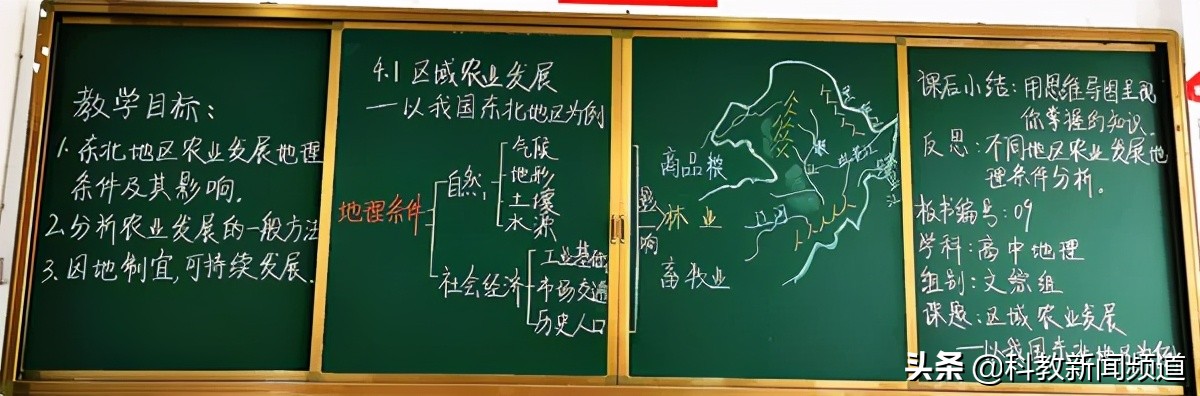 教学目标：
1. 东北地区农业发展地理
条件及其影响.
2. 分析农业发展的一般方法
3. 因地制宜,可持续发展.
4.1 区域农业发展
—以我国东北地区为例
地理条件
自然
气候
地形
土壤
水源
社会经济
工业基础
市场交通
历史人口
影响
商品粮
林业
畜牧业
辽河
课后小结：用思维导图呈现
你掌握的知识.
反思：不同地区农业发展地
理条件分析.
板书编号：09
学科：高中地理
组别：文综组
课题：区域农业发展
—以我国东北地区为例
头条 @科教新闻频道